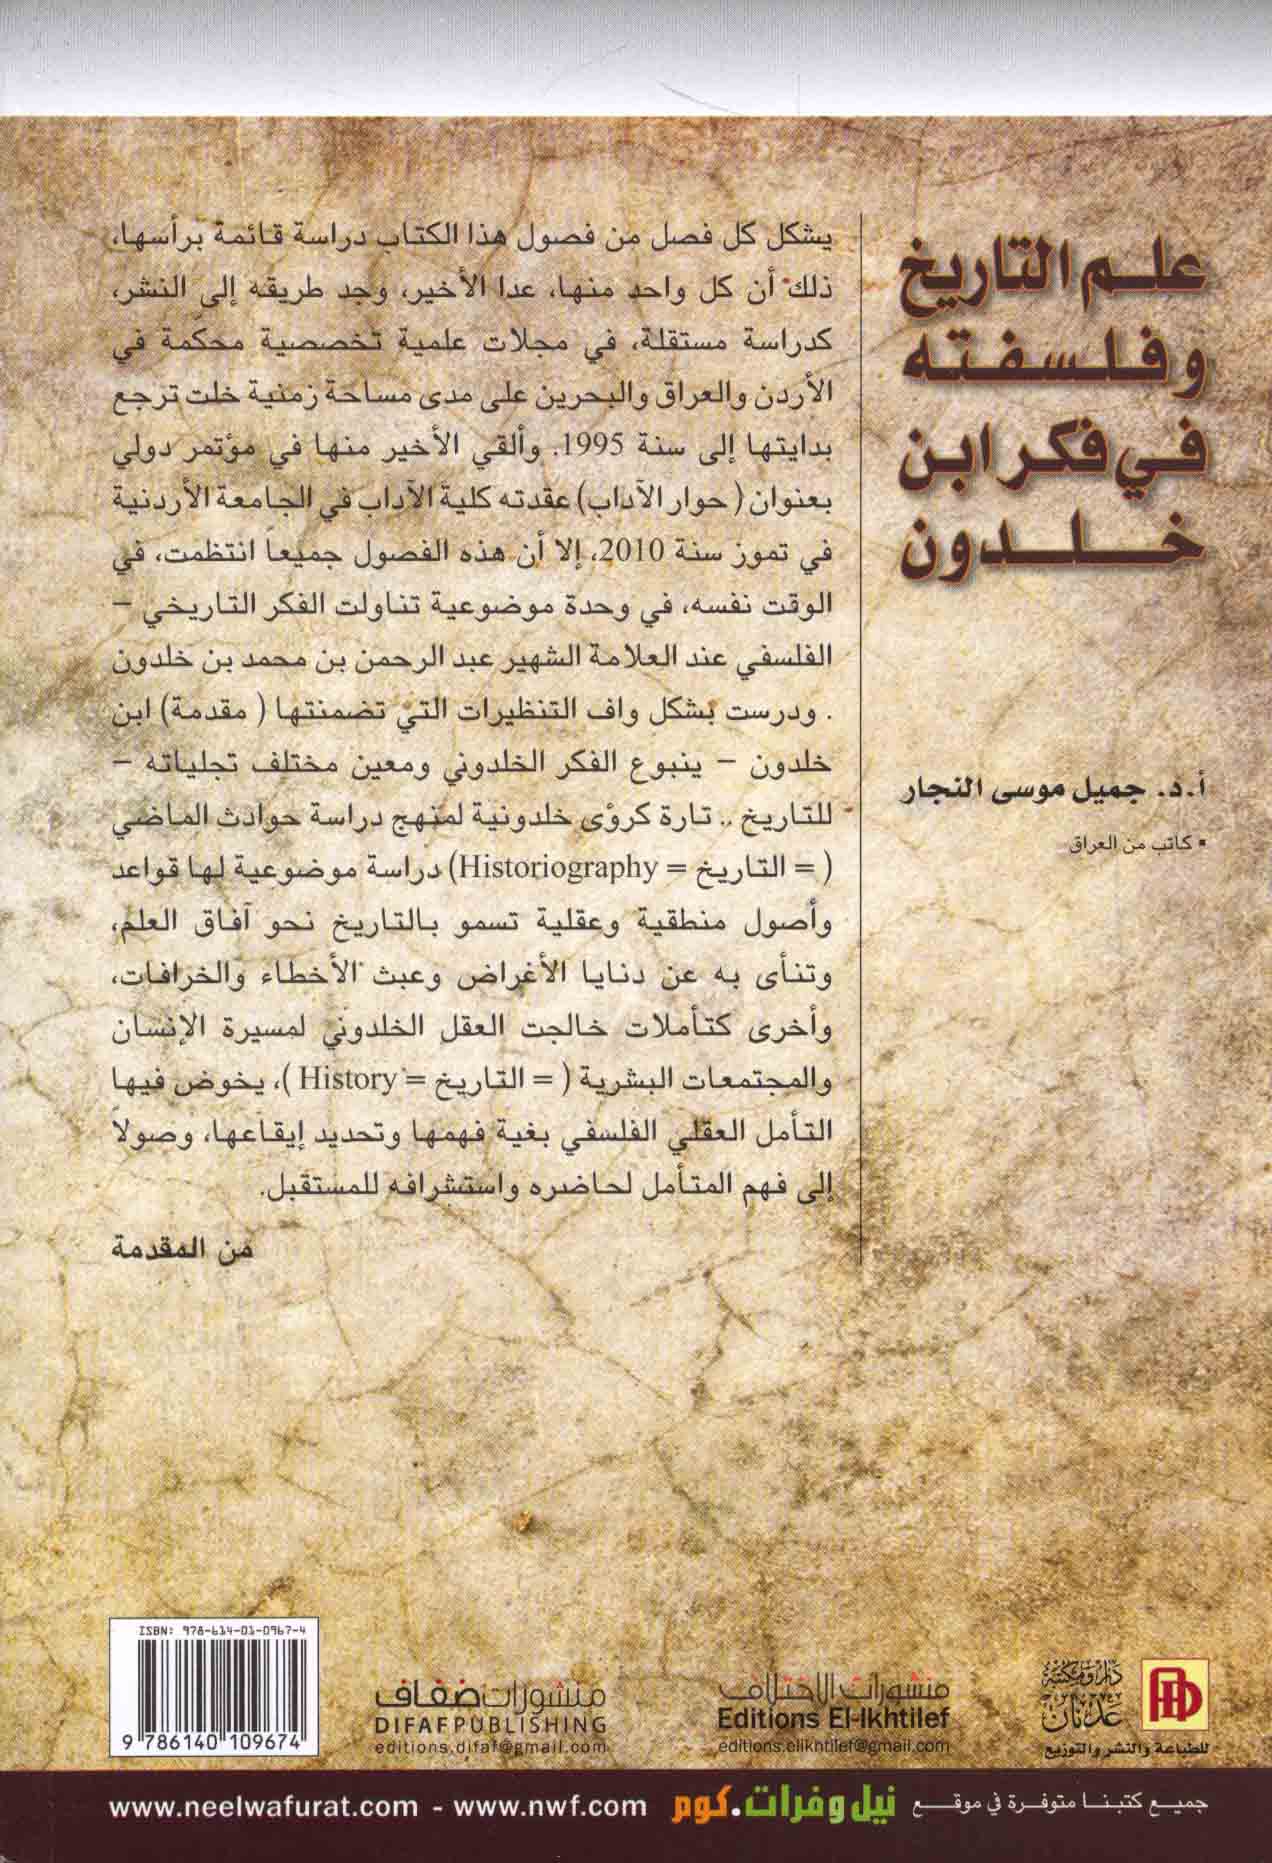 علم التاريخ
وفلسفته
في فكر ابن
خلدون
أ.د. جميل موسى النجار
▪ كاتب من العراق
يشكل كل فصل من فصول هذا الكتاب دراسة قائمة برأسها،
ذلك أن كل واحد منها، عدا الأخير، وجد طريقه إلى النشر،
كدراسة مستقلة، في مجلات علمية تخصصية محكّمة في
الأردن والعراق والبحرين على مدى مساحة زمنية خلت ترجع
بدايتها إلى سنة 1995. وألقي الأخير منها في مؤتمر دولي
بعنوان ( حوار الآداب) عقدته كلية الآداب في الجامعة الأردنية
في تموز سنة 2010. إلا أن هذه الفصول جميعاً انتظمت، في
الوقت نفسه، في وحدة موضوعية تناولت الفكر التاريخي –
الفلسفي عند العلامة الشهير عبد الرحمن بن محمد بن خلدون
. ودرست بشكل واف التنظيرات التي تضمنتها ( مقدمة) ابن
خلدون – ينبوع الفكر الخلدوني ومعين مختلف تجلياته –
للتاريخ .. تارة كرؤى خلدونية لمنهج دراسة حوادث الماضي
( = التاريخ = Historiography) دراسة موضوعية لها قواعد
وأصول منطقية وعقلية تسمو بالتاريخ نحو آفاق العلم،
وتنأى به عن دنايا الأغراض وعبث الأخطاء والخرافات،
وأخرى كتأملات خالجت العقل الخلدوني لمسيرة الإنسان
والمجتمعات البشرية ( = التاريخ = History )، يخوض فيها
التأمل العقلي الفلسفي بغية فهمها وتحديد إيقاعها، وصولاً
إلى فهم المتأمل لحاضره واستشرافه للمستقبل.
من المقدمة
دار ومكتبة
عدنان
للطباعة والنشر والتوزيع
منشورات الاختلاف
Editions El-Ikhtilef
editions.elikhtilef@gmail.com
منشورات ضفاف
DIFAF PUBLISHING
editions.difaf@gmail.com
ISBN: 978-614-01-0967-4
9 786140 109674
جميع كتبنا متوفرة في موقع نيل وفرات.كوم www.neelwafurat.com - www.nwf.com